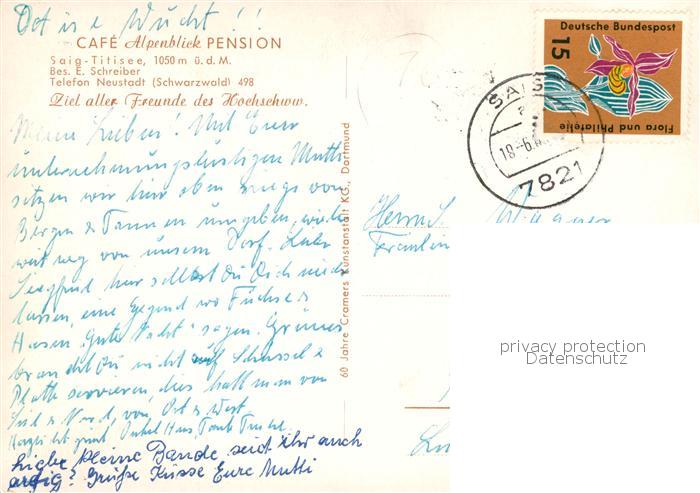 Dat is e Wucht!!
CAFÉ Alpenblick PENSION
Saig-Titisee, 1050 m ü. d. M.
Bes. E. Schreiber
Telefon Neustadt (Schwarzwald) 498
Ziel aller Freunde des Hochschww.
Meine Lieben! Mit Eurer
unternehmungslustigen Mutti
sitzen wir hier oben rings von
Bergen & Tannen umgeben,
weit weg von unserm Dorf. Lieber
Siegfried hier Du Dich nieder
lassen, eine Gegend wo Füchse &
Hasen "Gute Nacht" sagen. Grünes
brauchst Du nicht auf Schüssel &
Platte servieren, dies hat man von
Süd & Nord, von Ost & West.
Herzlichst grüßt Onkel Hans, Tante
Liebe kleine Bande seid ihr auch
artig? Grüße Küsse Eure Mutti
60 Jahre Cramers Kunstanstalt KG., Dortmund
Deutsche Bundespost
15
Flora und Philatelie
SAIG
18.-6.
7821
Herrn S. Wagner
Fräulein
privacy protection
Datenschutz